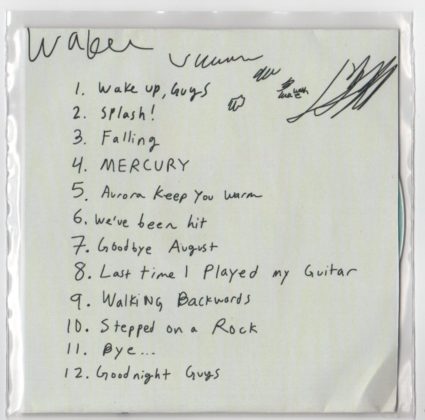 1. Wake up, Guys
2. Splash!
3. Falling
4. MERCURY
5. Aurora Keep You Warm
6. We've been hit
7. Goodbye August
8. Last time I Played my Guitar
9. Walking Backwords
10. Stepped on a Rock
11. Bye...
12. Goodnight Guys